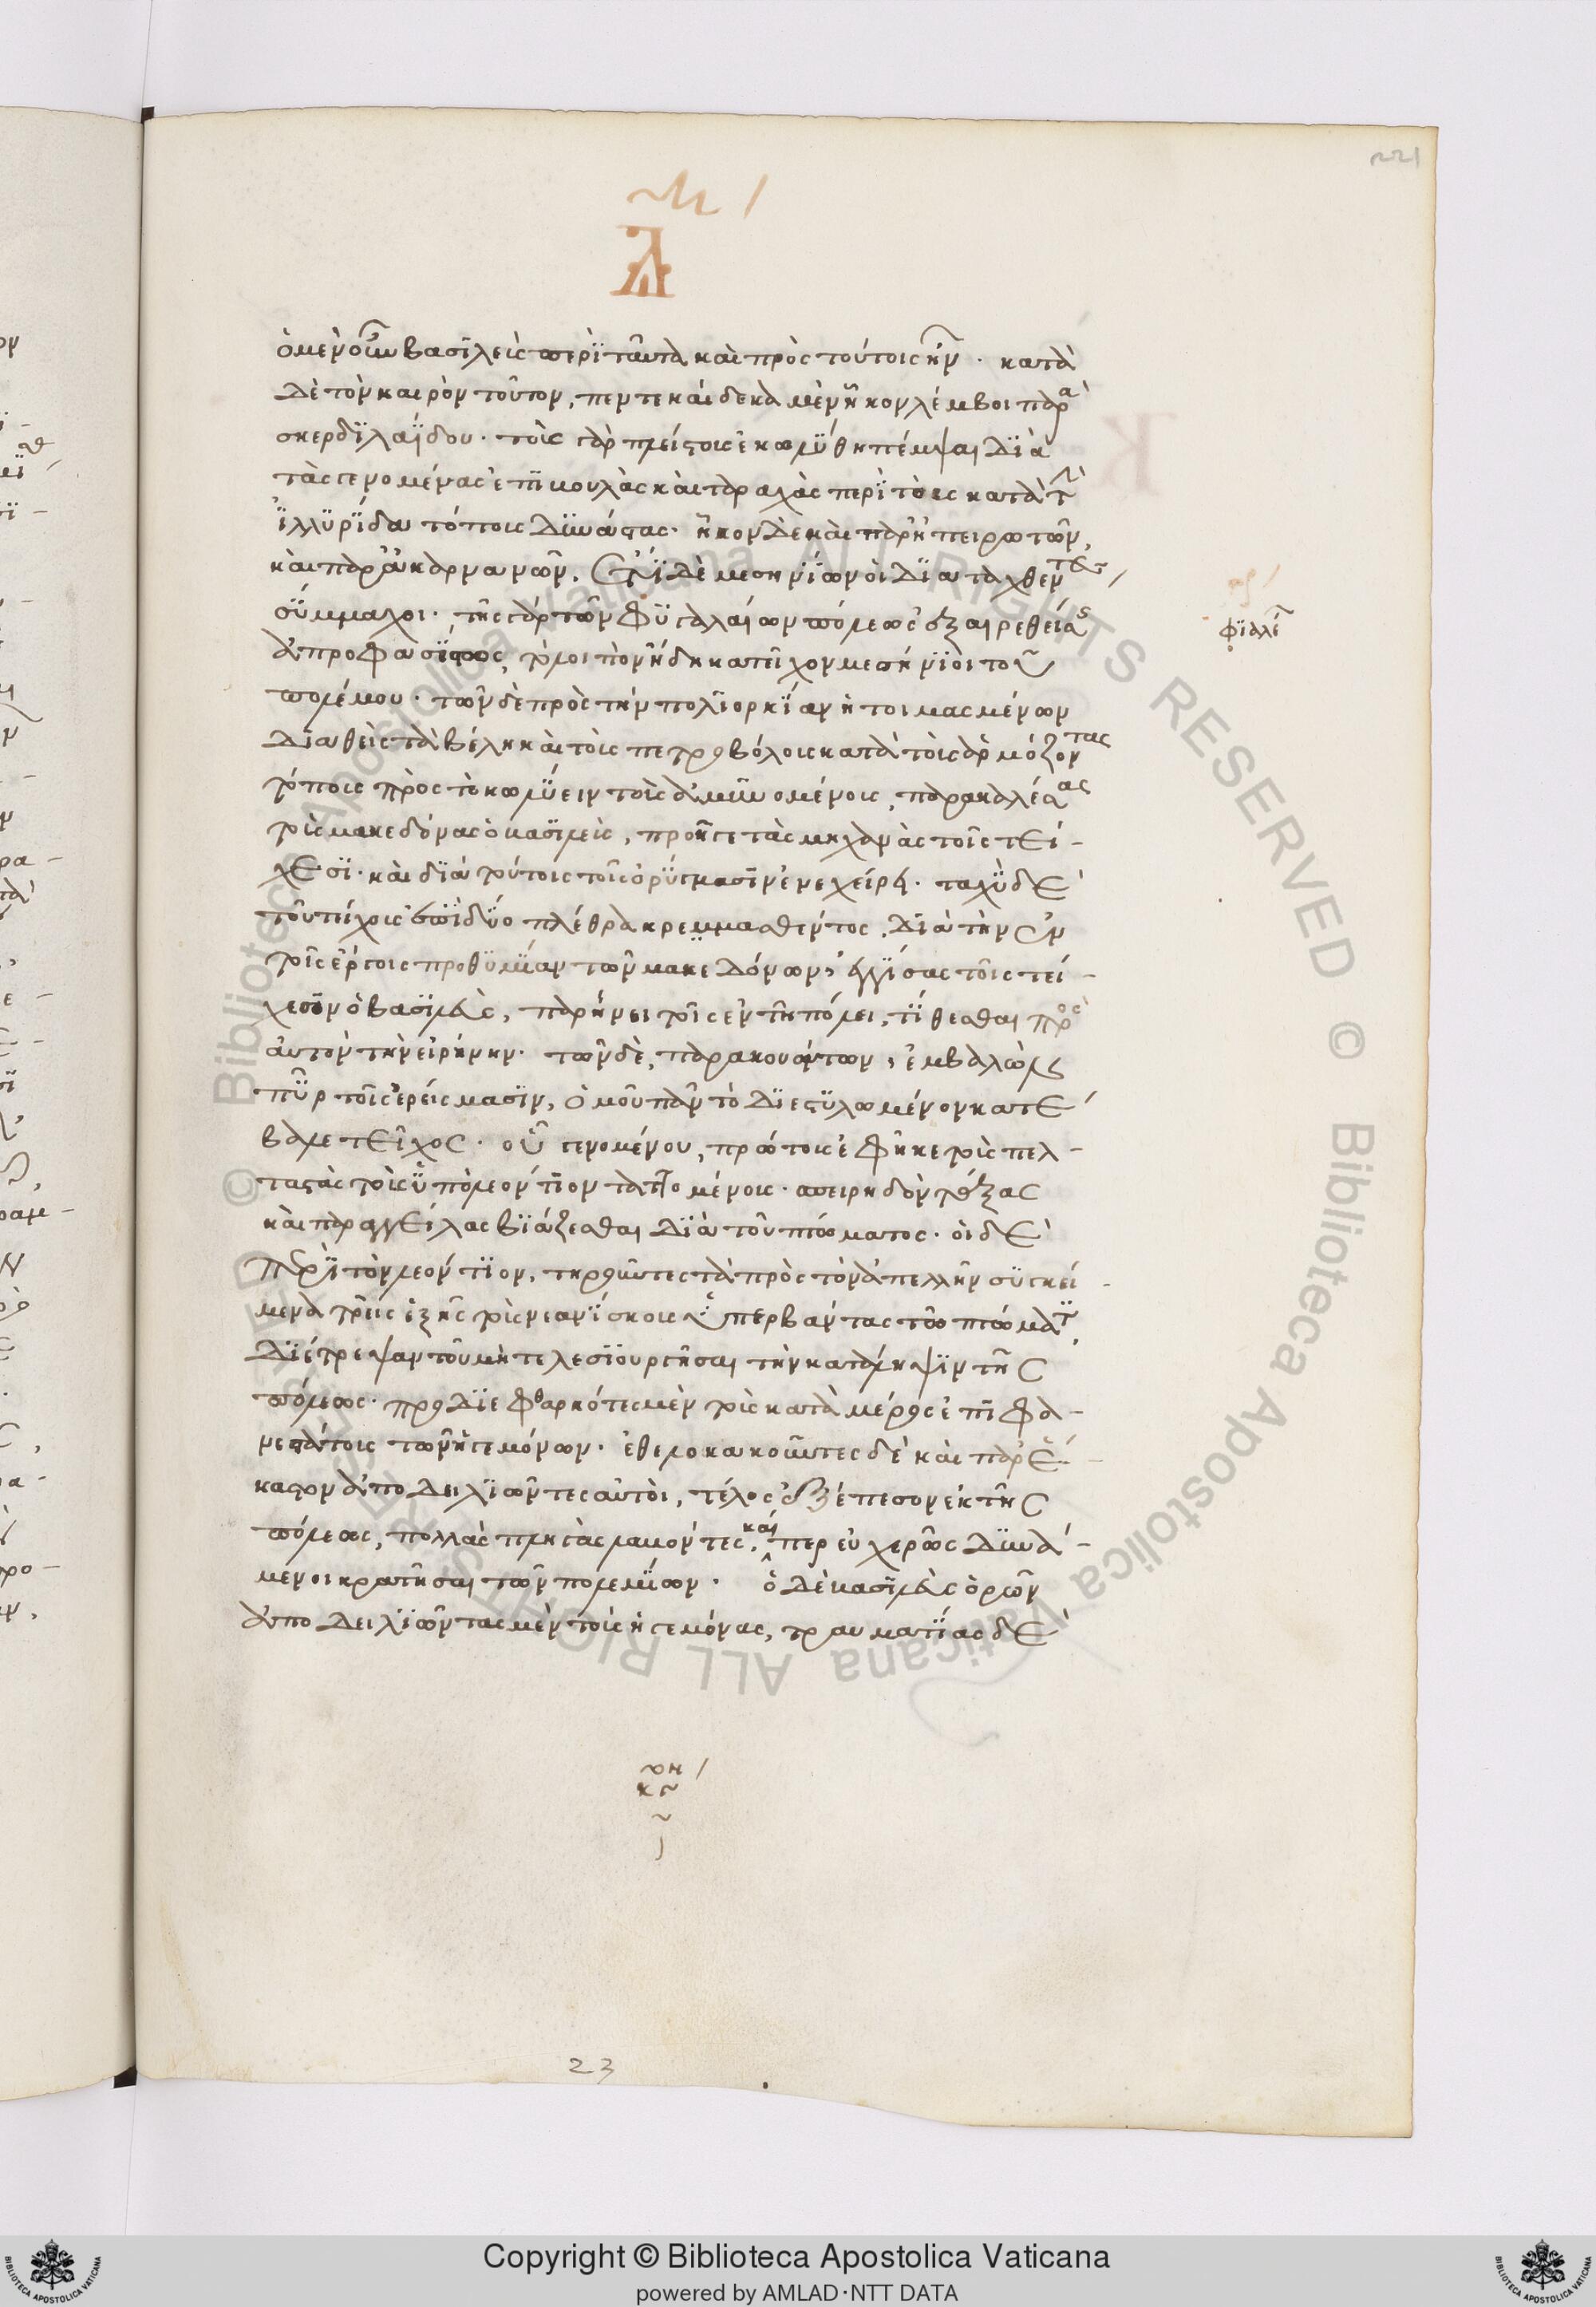 221
ὁ μὲν οὖν βασϊλεὺς περὶ ταῦτα καὶ πρὸς τούτοις ἦν · κατὰ
δὲ τὸν καιρὸν τοῦτον, πεντεκαίδεκα μὲν ἧκον λέμβοι παρὰ
σκερδϊλαΐδου · τοὺς γὰρ πλείστους ἐκωλύθη πέμψαι διὰ
τὰς γενομένας ἐπιβουλὰς καὶ ταραχὰς περὶ τοὺς κατὰ τὴν
ἰλλυρίδα τόπους δυνάστας · ἧκον δὲ καὶ παρ' ἠπειρωτῶν,
καὶ παρ' ἀκαρνάνων, ἔτι δὲ μεσηνίων οἱ διαταχθέντες
σύμμαχοι · τῆς γὰρ τῶν φυγαλαίων πόλεως ἐξαιρεθείσης
ἀπροφασίστως, τὸ λοιπὸν ἤδη κατεῖχον μεσήνιοι τοῦ
φιαλέων
πολέμου · τῶν δὲ πρὸς τὴν πολιορκίαν ἡτοιμασμένων
διαθεὶς τὰ βέλη καὶ τοὺς πετροβόλους κατὰ τοὺς ἁρμόζοντας
τόπους πρὸς τὸ κωλύειν τοὺς ἀμυνομένους, παρακαλέσας
τοὺς μακεδόνας ὁ βασιλεὺς, προσῆγε τὰς μηχανὰς τοῖς τεί-
χεσι · καὶ διὰ τούτοις τοῖς ὀρύγμασιν ἐνεχείρει · ταχὺ δὲ
τοῦ τείχους ἐπὶ δύο πλέθρα κρεμμασθέντος, διὰ τὴν ἐν
τοῖς ἔργοις προθυμίαν τῶν μακεδόνων, ἐγγίσας τοῖς τεί-
χεσιν ὁ βασιλεὺς, παρῄνει τοῖς ἐν τῇ πόλει, τίθεσθαι πρὸς
αὐτὸν τὴν εἰρήνην · τῶν δὲ, παρακουόντων, ἐμβαλὼν
πῦρ τοῖς ἐρείσμασιν, ὁμοῦ πᾶν τὸ διεστυλωμένον κατέ
βαλε τεῖχος · οὗ γενομένου, πρώτους ἐφῆκε τοὺς πελ-
ταστὰς τοὺς ὑπὸ λεόντιον ταττομένους · σπειρηδὸν τάξας
καὶ παραγγείλας βιάζεσθαι διὰ τοῦ πτώματος · οἱ δὲ
περὶ τὸν λεόντιον, τηροῦντες τὰ πρὸς τὸν ἀπελλῆν συγκεί-
μενα τρεῖς ἑξῆς τοὺς νεανίσκους ὑπερβάντας τὸ πτῶμα,
διέτρεψαν τοῦ μὴ τελεσιουργῆσαι τὴν κατάληψιν τῆς
πόλεως · προδιεφθαρκότες μὲν τοὺς κατὰ μέρος ἐπιφα-
νεστάτους τῶν ἡγεμόνων · ἐθελοκακοῦντες δὲ καὶ παρ' ἕ-
καστον ἀποδειλιῶντες αὐτοὶ, τέλος ἐξέπεσον ἐκ τῆς
πόλεως, πολλὰς πληγὰς λαβόντες, καίπερ εὐχερῶς δυνά-
μενοι κρατῆσαι τῶν πολεμίων · ὁ δὲ βασιλεὺς ὁρῶν
ἀποδειλιῶντας μὲν τοὺς ἡγεμόνας, τραυματίας δὲ
23
Copyright © Biblioteca Apostolica Vaticana
powered by AMLAD·NTT DATA